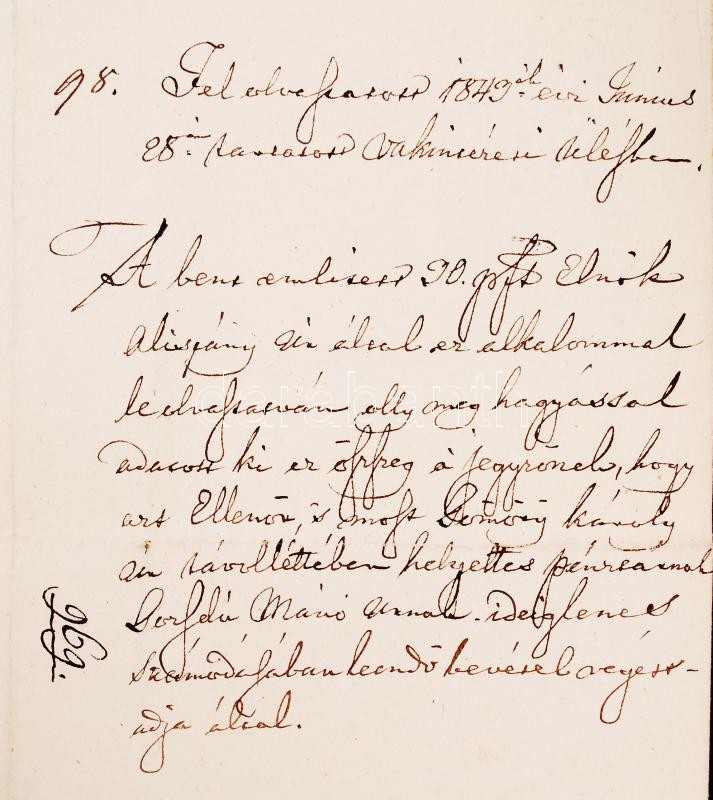 98. Felolvastatott 1843ik évi Június
28án tartatott Választmányi Ülésben.
A bent emlitett 90. pft Elnök
Alispány Úr által ez alkalommal
leolvastatván olly meg hagyással
adatott ki ez összeg a jegyzőnek, hogy
azt Ellenőr, 's most Gömöry károly
úr távollétében helyettes pénztárnok
Mánó Urnak ideiglenes
számódásában leendő bevétel végett
adja által.
969.
darabanth